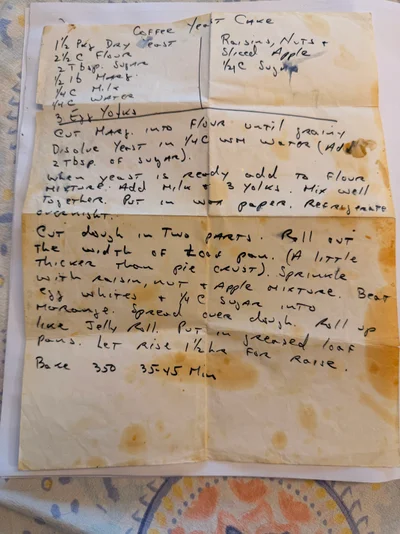 Coffee Yeast Cake
1½ Pkg Dry Yeast
2½ C Flour
2 Tbsp. Sugar
½ lb Marg.
¼ C Milk
¼ C Water
3 Egg Yolks
Raisins, Nuts +
Sliced Apple
¼ C Sugar
Cut Marg. into Flour until grainy
Disolve Yeast in ¼ C wm Water (Add
2 Tbsp. of sugar).
When yeast is ready add to flour
mixture. Add Milk + 3 Yolks. Mix well
together. Put in wax paper. Refrigerate
overnight.
Cut dough in Two parts. Roll out
the width of loaf pan. (A little
thicker than pie crust). Sprinkle
with raisin, nut + Apple mixture. Beat
Egg whites + ¼ C Sugar into
Spread over dough. Roll up
like Jelly Roll. Put in greased loaf
pans. Let rise 1½ hr for raise.
Bake 350 35-45 Min